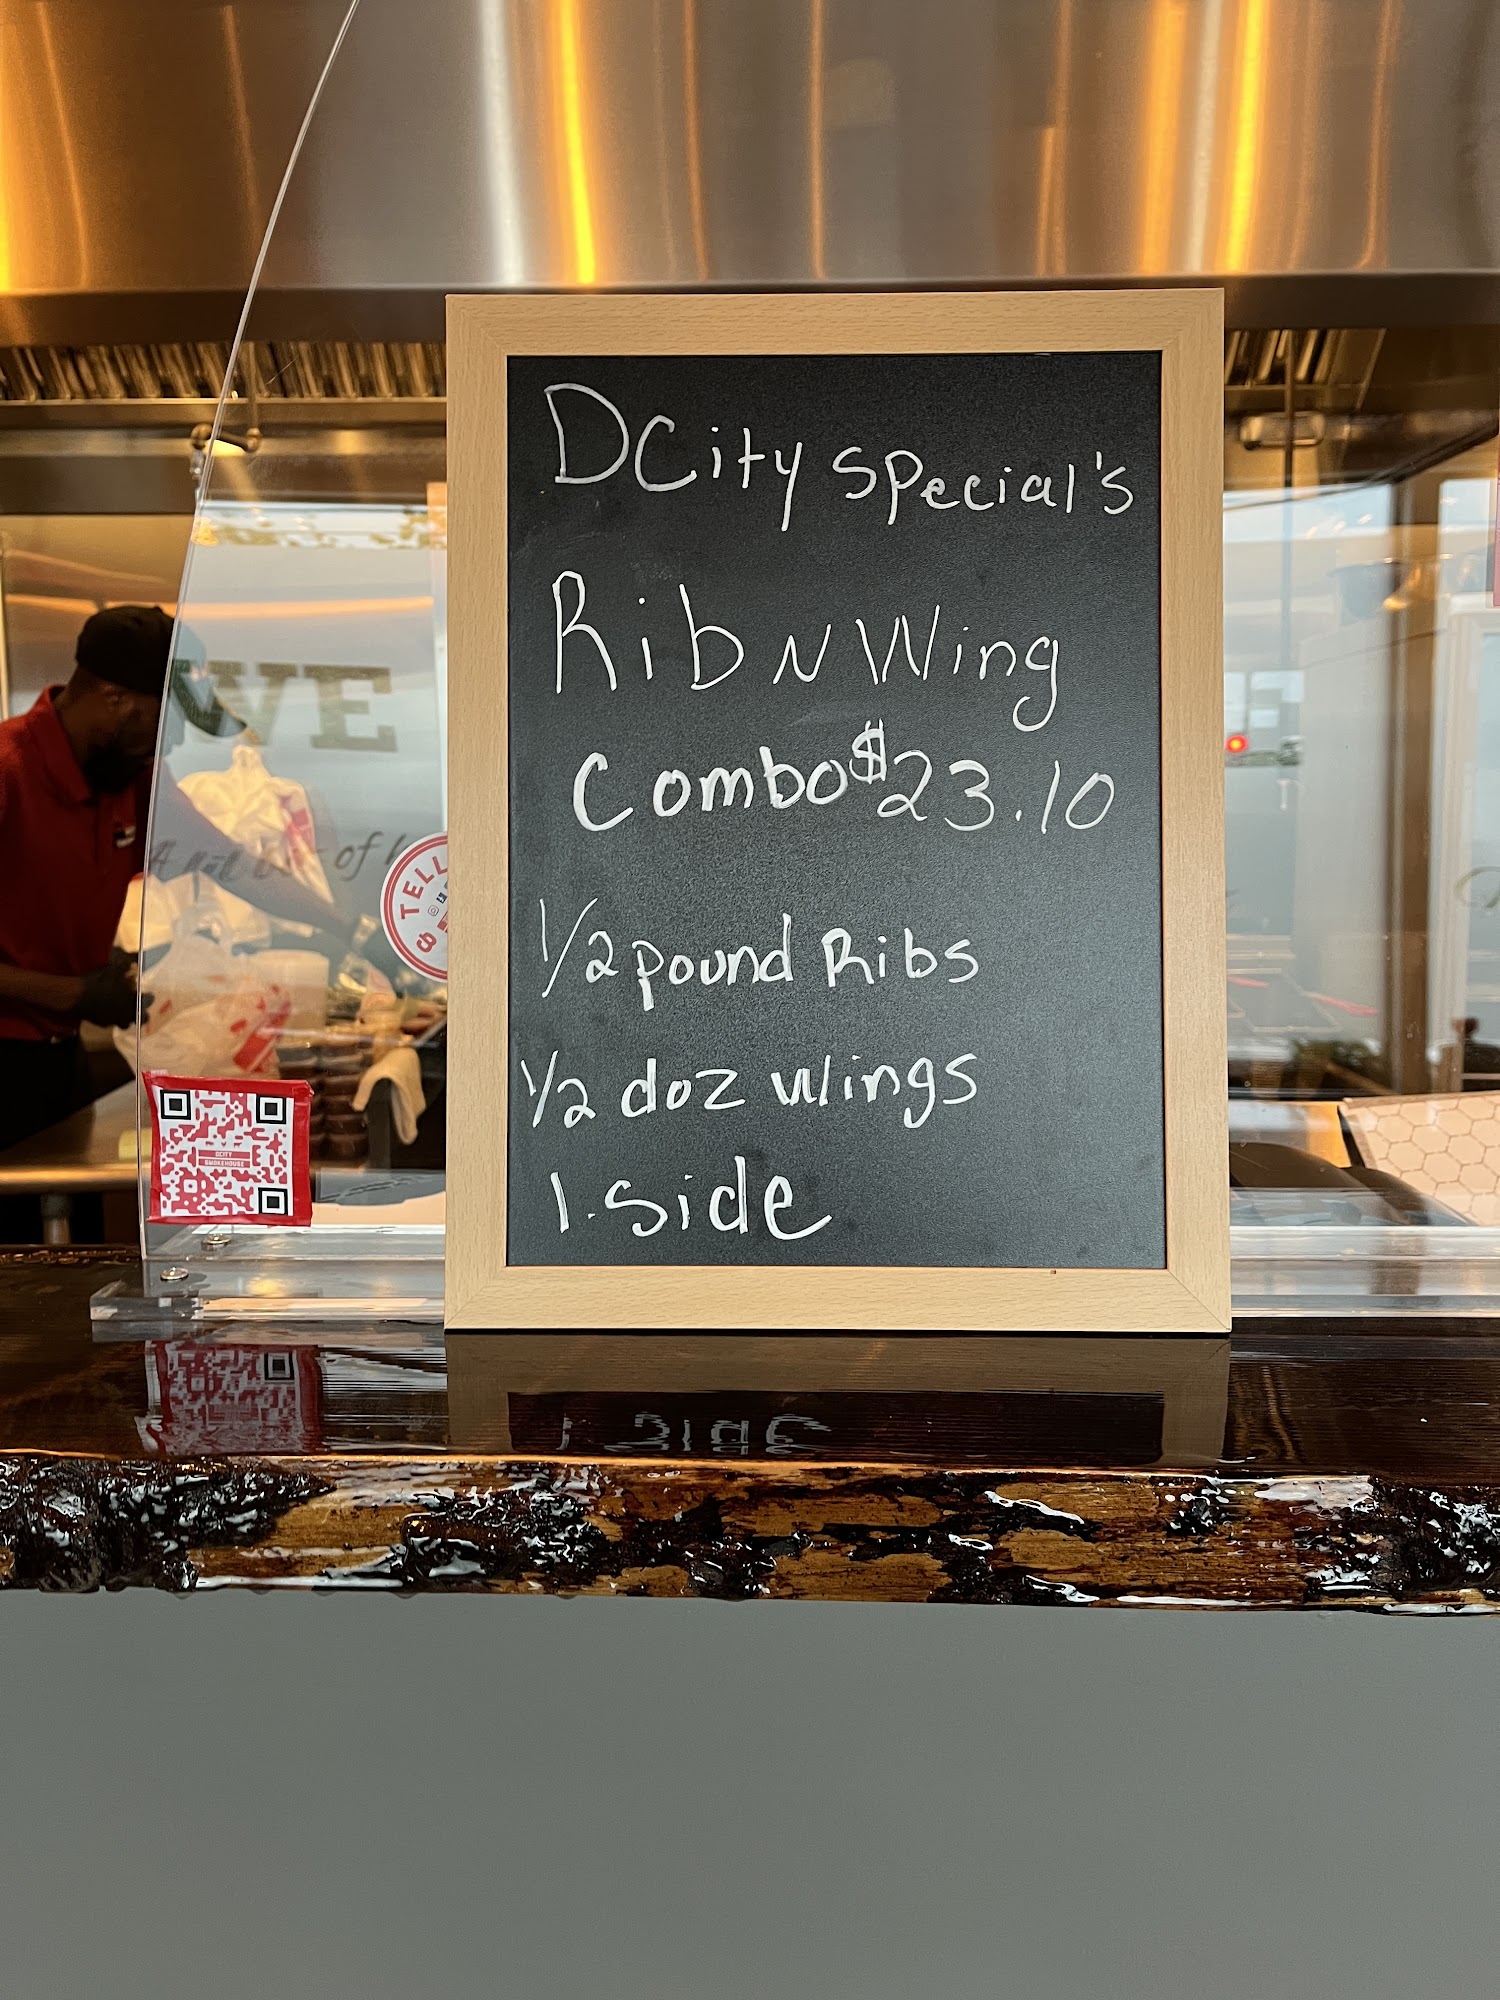 DCity Special's
Rib N Wing
Combo $23.10
1/2 pound Ribs
1/2 doz wings
1. side
WE
of
TELL
&
DCITY
SMOKEHOUSE